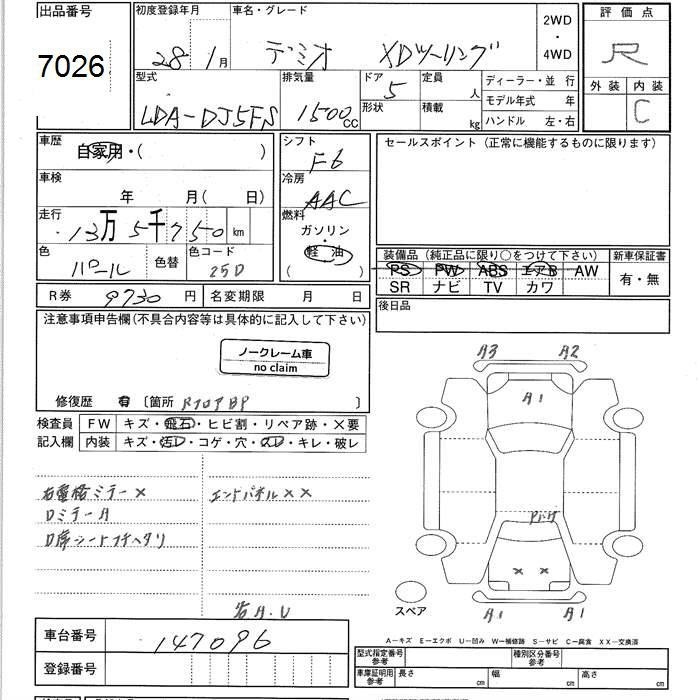 出品番号
7026
初度登録年月
28 1月
車名・グレード
デミオ XDツーリング
2WD
・
4WD
評価点
R
外装 内装
C
型式
LDA-DJ5FS
排気量
1500cc
ドア
5
形状
定員
人
積載
kg
ディーラー・並 行
モデル年式 年
ハンドル 左・右
車歴
自家用・( )
車検
年 月( 日)
走行
13万5千750km
色
パール
色替
色コード
25D
シフト
F6
冷房
AAC
燃料
ガソリン
・
軽 油
( )
セールスポイント(正常に機能するものに限ります)
装備品(純正品に限り○をつけて下さい)
PS PW ABS エアB AW
SR ナビ TV カワ
新車保証書
有・無
R券 9730円
名変期限 月 日
後日品
注意事項申告欄(不具合内容等は具体的に記入して下さい)
ノークレーム車
no claim
修復歴 有 〔箇所 RフロアBP 〕
検査員
記入欄
FW キズ・飛石・ヒビ割・リペア跡・×要
内装 キズ・汚D・コゲ・穴・スD・キレ・破レ
右電格ミラー×
Dミラー A
D席シートフチヘタリ
エンドパネル××
A.U
A3 A2
A1
Pハゲ
× ×
A1 A1
スペア
A-キズ E-エクボ U-凹み W-補修跡 S-サビ C-腐食 XX-交換済
車台番号
147096
登録番号
型式指定番号
参考
種別区分番号
参考
車庫証明用
参考
長さ cm
幅 cm
高さ cm